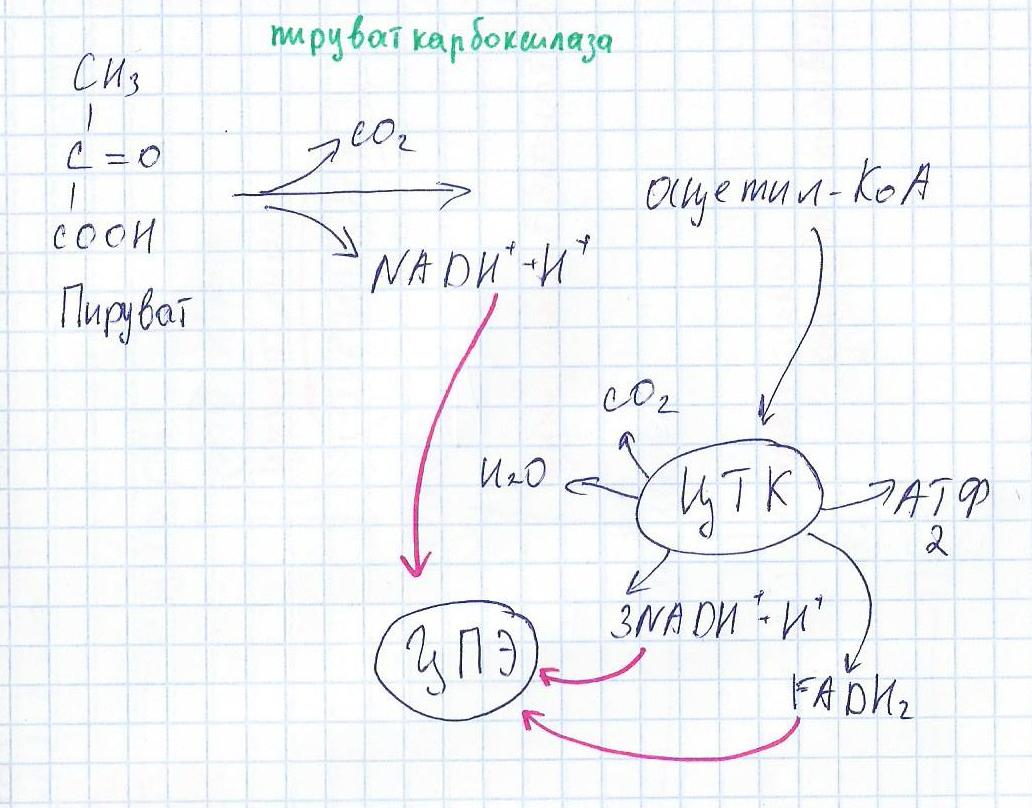 пируват карбоксилаза
CH₃
|
C = O
|
COOH
Пируват
CO₂
NADH⁺+H⁺
ацетил-КоА
CO₂
H₂O
ЦТК
АТФ
2
3NADH⁺+H⁺
ЦПЭ
FADH₂